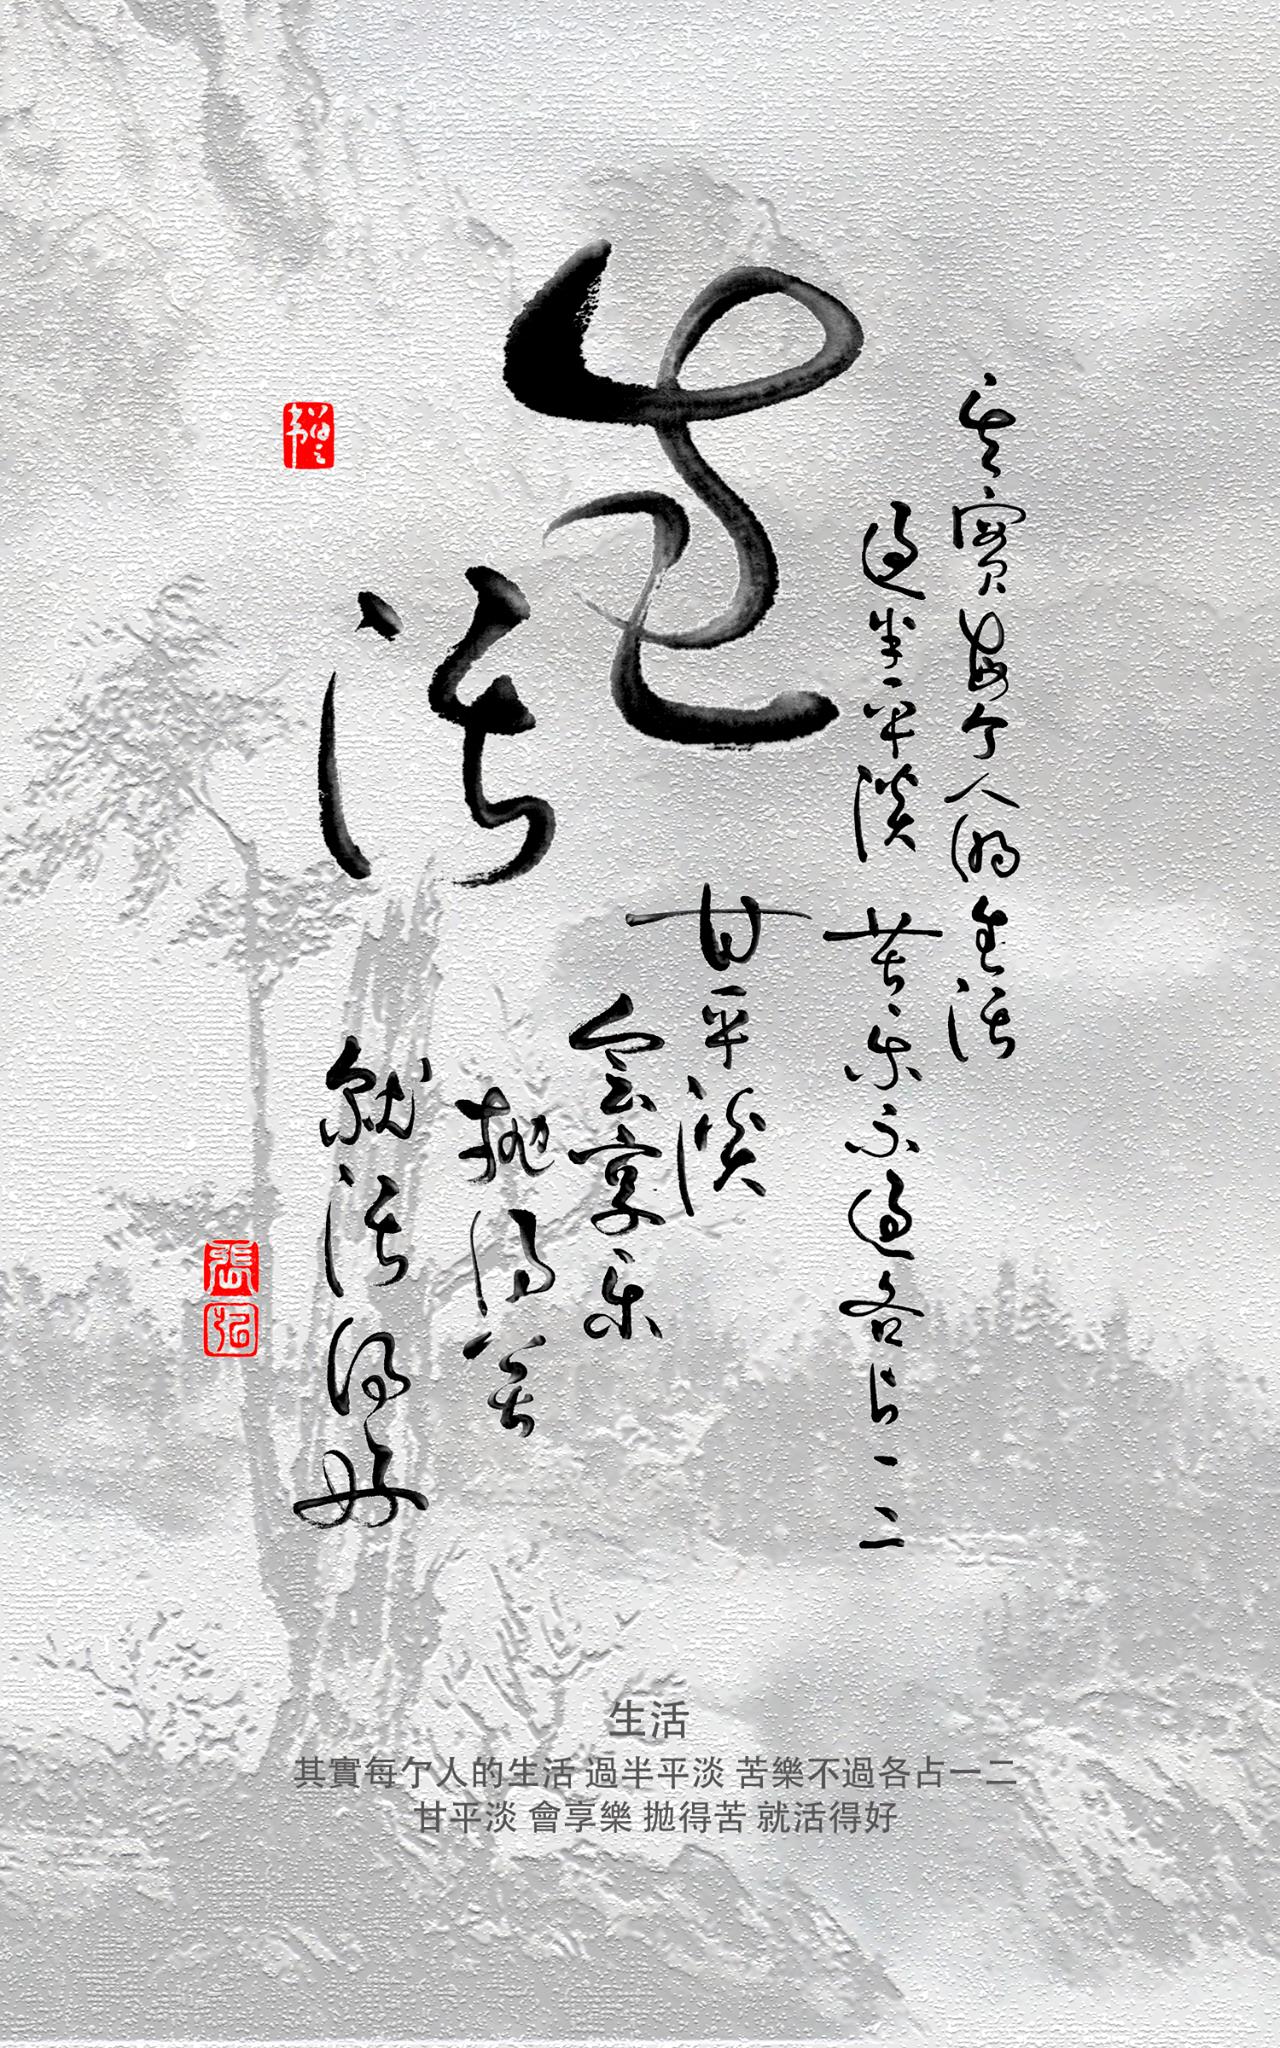 生活
其實每亇人的生活
過半平淡 苦樂不過各占一二
甘平淡
會享樂
拋得苦
就活得好
生活
其實每亇人的生活 過半平淡 苦樂不過各占一二
甘平淡 會享樂 拋得苦 就活得好